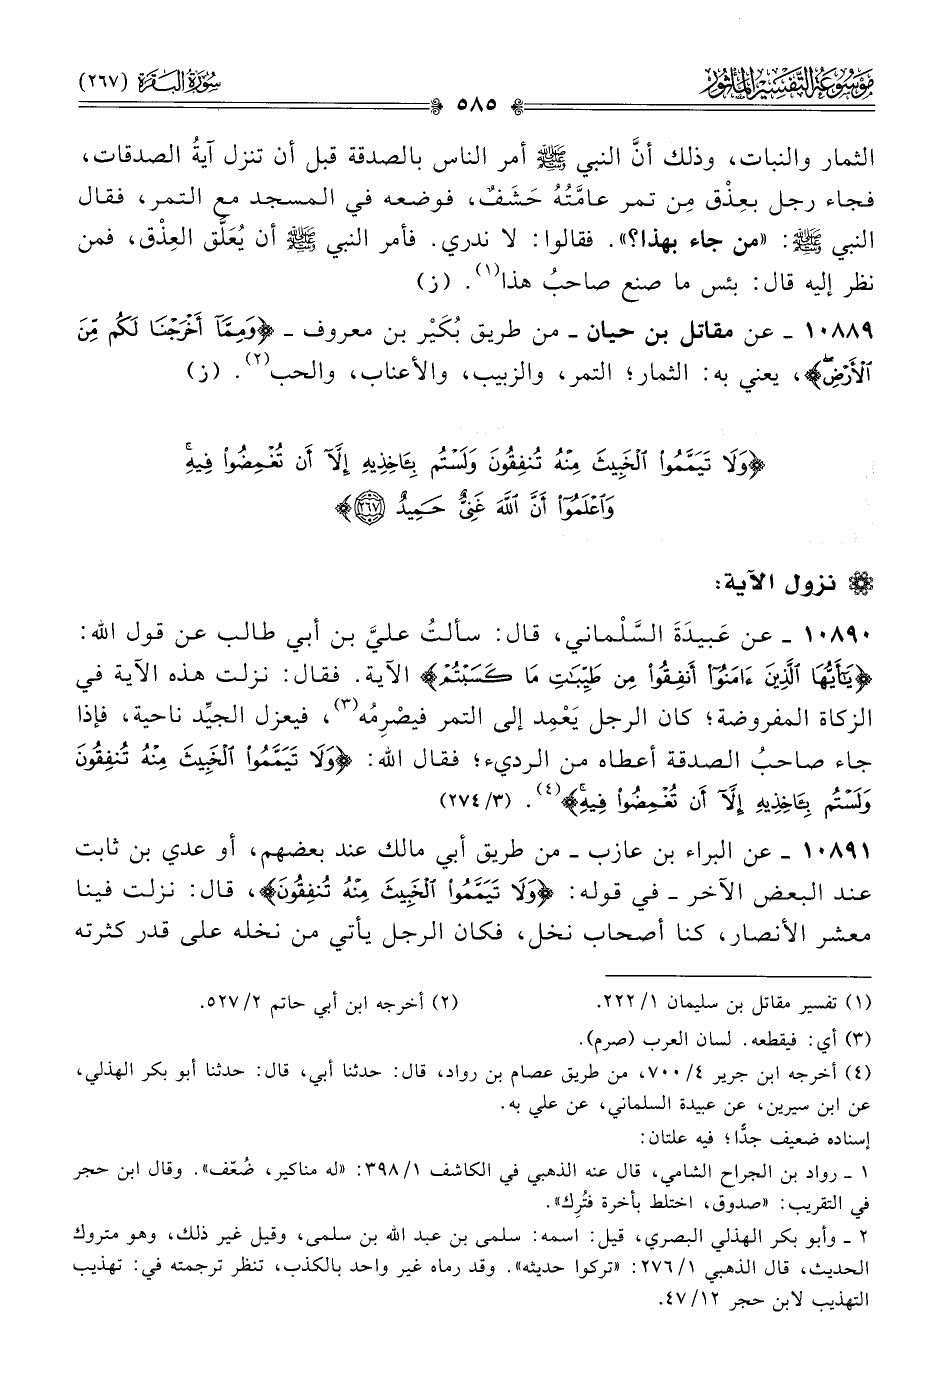 موسوعة التفسير المأثور
سورة البقرة (٢٦٧)
٥٨٥
الثمار والنبات، وذلك أنَّ النبي ﷺ أمر الناس بالصدقة قبل أن تنزل آيةُ الصدقات،
فجاء رجل بعِذْق مِن تمر عامَّتُهُ حَشَفٌ، فوضعه في المسجد مع التمر، فقال
النبي ﷺ: «من جاء بهذا؟». فقالوا: لا ندري. فأمر النبي ﷺ أن يُعَلَّق العِذْق، فمن
نظر إليه قال: بئس ما صنع صاحبُ هذا(١). (ز)
١٠٨٨٩ ـ عن مقاتل بن حيان ـ من طريق بُكَيْر بن معروف ـ ﴿وَمِمَّآ أَخْرَجْنَا لَكُم مِّنَ
ٱلْأَرْضِۖ﴾، يعني به: الثمار؛ التمر، والزبيب، والأعناب، والحب(٢). (ز)
﴿وَلَا تَيَمَّمُوا۟ ٱلْخَبِيثَ مِنْهُ تُنفِقُونَ وَلَسْتُم بِـَٔاخِذِيهِ إِلَّآ أَن تُغْمِضُوا۟ فِيهِۚ
وَٱعْلَمُوٓا۟ أَنَّ ٱللَّهَ غَنِىٌّ حَمِيدٌ ٢٦٧﴾
نزول الآية:
١٠٨٩٠ ـ عن عَبِيدَةَ السَّلْماني، قال: سألتُ عليَّ بن أبي طالب عن قول الله:
﴿يَٰٓأَيُّهَا ٱلَّذِينَ ءَامَنُوٓا۟ أَنفِقُوا۟ مِن طَيِّبَٰتِ مَا كَسَبْتُمْ﴾ الآية. فقال: نزلت هذه الآية في
الزكاة المفروضة؛ كان الرجل يَعْمِد إلى التمر فيصْرِمُه(٣)، فيعزل الجيِّد ناحية، فإذا
جاء صاحبُ الصدقة أعطاه من الرديء؛ فقال الله: ﴿وَلَا تَيَمَّمُوا۟ ٱلْخَبِيثَ مِنْهُ تُنفِقُونَ
وَلَسْتُم بِـَٔاخِذِيهِ إِلَّآ أَن تُغْمِضُوا۟ فِيهِۚ﴾(٤). (٢٧٤/٣)
١٠٨٩١ ـ عن البراء بن عازب ـ من طريق أبي مالك عند بعضهم، أو عدي بن ثابت
عند البعض الآخر ـ في قوله: ﴿وَلَا تَيَمَّمُوا۟ ٱلْخَبِيثَ مِنْهُ تُنفِقُونَ﴾، قال: نزلت فينا
معشر الأنصار، كنا أصحاب نخل، فكان الرجل يأتي من نخله على قدر كثرته
(١) تفسير مقاتل بن سليمان ٢٢٢/١. (٢) أخرجه ابن أبي حاتم ٥٢٧/٢.
(٣) أي: فيقطعه. لسان العرب (صرم).
(٤) أخرجه ابن جرير ٧٠٠/٤، من طريق عصام بن رواد، قال: حدثنا أبي، قال: حدثنا أبو بكر الهذلي،
عن ابن سيرين، عن عبيدة السلماني، عن علي به.
إسناده ضعيف جدًّا؛ فيه علتان:
١ ـ رواد بن الجراح الشامي، قال عنه الذهبي في الكاشف ٣٩٨/١: «له مناكير، ضُعّف». وقال ابن حجر
في التقريب: «صدوق، اختلط بأخرة فتُرك».
٢ ـ وأبو بكر الهذلي البصري، قيل: اسمه: سلمى بن عبد الله بن سلمى، وقيل غير ذلك، وهو متروك
الحديث، قال الذهبي ٢٧٦/١: «تركوا حديثه». وقد رماه غير واحد بالكذب، تنظر ترجمته في: تهذيب
التهذيب لابن حجر ٤٧/١٢.